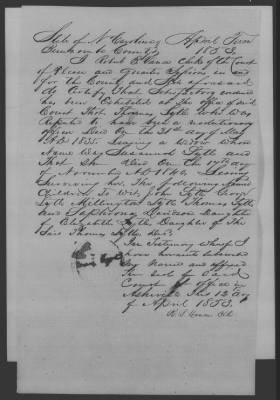 State of N Carolina April Term
Buncombe County 1853.
I Robert B Vance Clerk of the Court
of Pleas and Quarter Sessions in and
for the County and State aforesaid
do Certify that Satisfactory evidence
has been Exhibited at the office of said
Court that Thomas Lytle who was
Reputed to have been a revolutionary
officer Died on the 31st day of May
AD 1835. Leaving a widow whose
Name was Susannah Lytle and
That she Died on the 17th day
of November AD 1840. Leaving
Surviving her The following named
Children To Wit John Lytle George
Lytle Millington Lytle Thomas Lytle
and Daughter
of Elizabeth Lytle Daughter of the
Said Thomas Lytle Decd
In Testimony whereof I
have hereunto subscribed
my Name and affixed
the seal of said
Court at office in
Asheville This 12 day
of April 1853.
R. B. Vance Clk